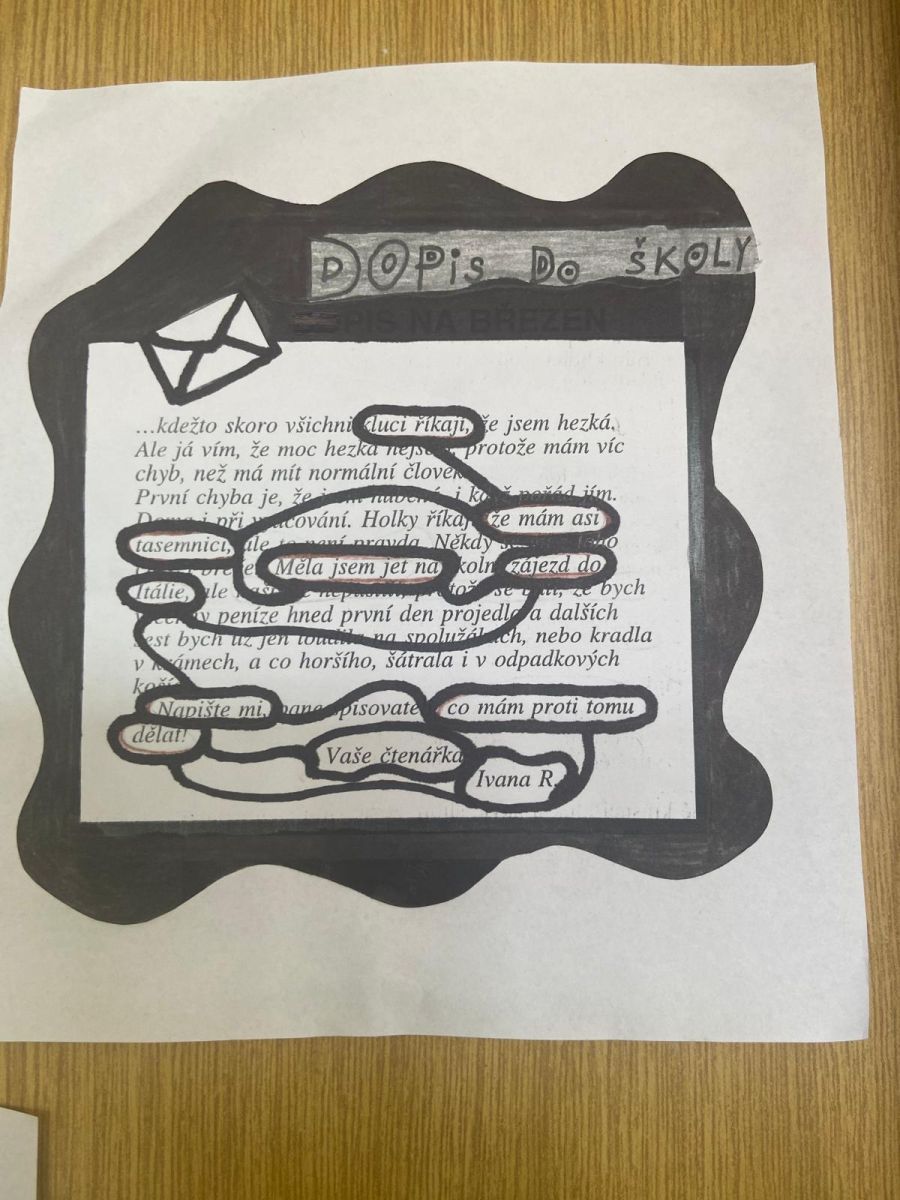 DOPiS Do ŠKOLY
PIS NA BŘEZEN
…kdežto skoro všichni kluci říkají, že jsem hezká.
Ale já vím, že moc hezká nejsem, protože mám víc
chyb, než má mít normální člověk.
První chyba je, že jsem hubená, i když pořád jím.
Doma i při vyučování. Holky říkají, že mám asi
tasemnici, ale to není pravda. Někdy
Měla jsem jet na školní zájezd do
Itálie, ale nepustili, protože se báli, že bych
všechny peníze hned první den projedla a dalších
šest bych už jen loudila na spolužácích, nebo kradla
v krámech, a co horšího, šátrala i v odpadkových
koších
Napište mi, pane spisovateli, co mám proti tomu
dělat!
Vaše čtenářka
Ivana R.